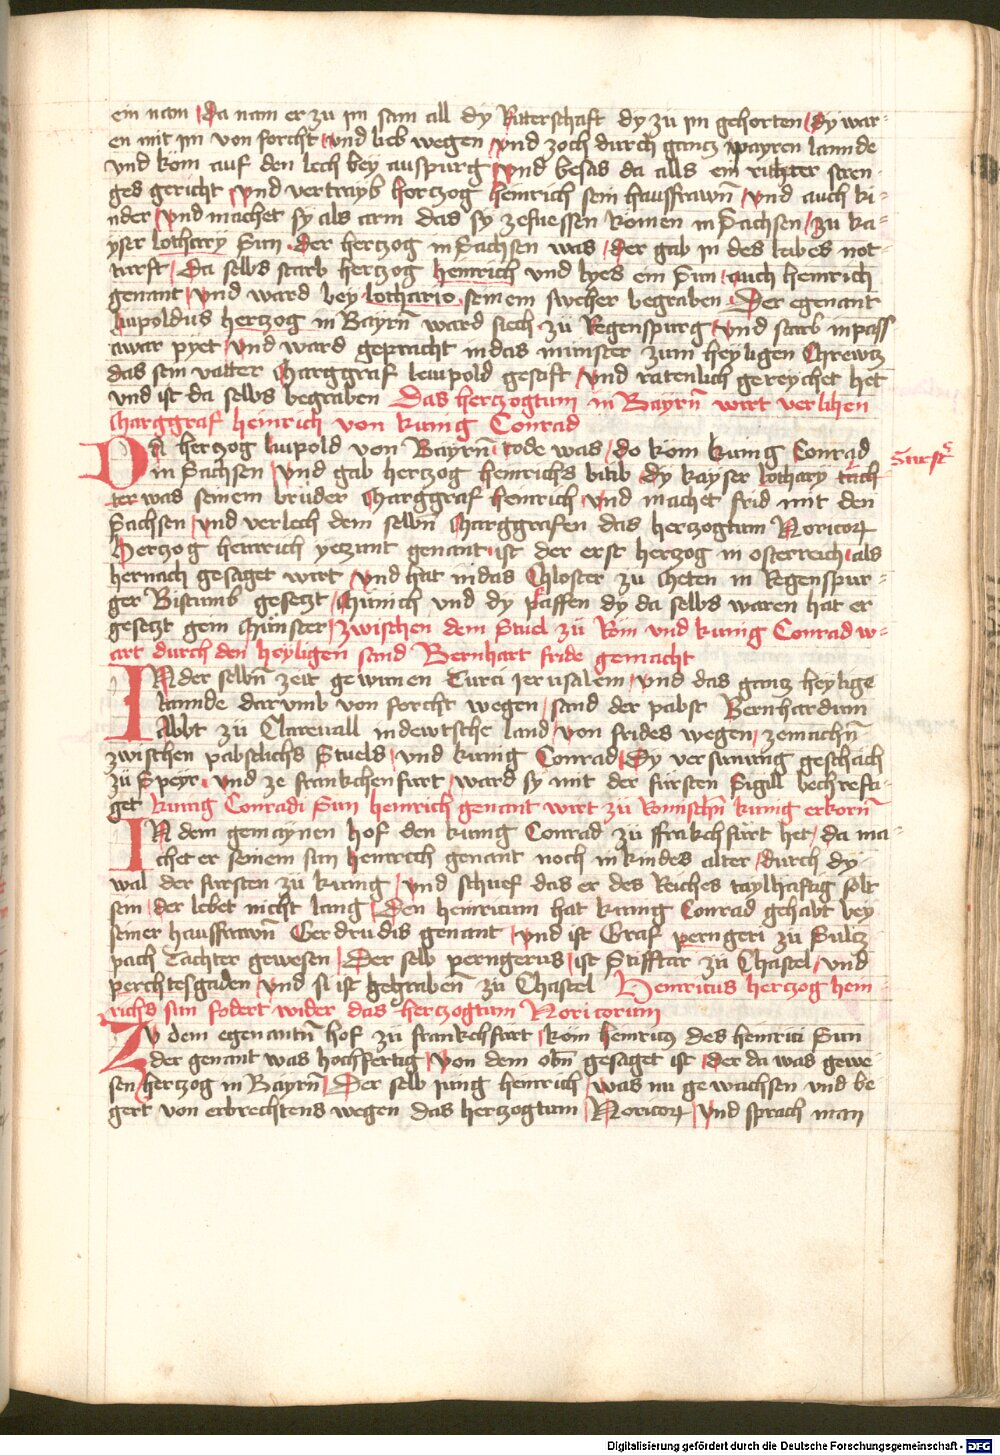 ein nam Da nam er zu im sam all dy Ritterschaft dy zu im gehorten Dy war-
en mit im von forcht und lieb wegen Und zoch durch gantz payren lannde
und kom auf den lech bey auspurg Und besas da alls ein richter stren-
ges gericht Und vertrayb hertzog heinrich sein haussfrawn Und auch ki-
nder Und machet sy als arm das sy zefuessen komen in Sachsen zu ka-
yser lothary Sun Der hertzog in Sachsen was Der gab in des leibes not-
turft Da selbs starb hertzog heinrich und lyes ein Sun auch heinrich
genant Und ward bey lothario seinem sweher begraben Der egenant
leupoldus hertzog in Bayrn ward siech zu Regenspurg Und starb in pass
awar pyet Und ward gepracht in das münster zum heyligen Chrewtz
das sein vatter Marggraf lewpold gestift Und ratenlich gereychet het
und ist da selbs begraben Das hertzogtum in Bayrn wirt verlihen
Marggraf heinrich von kunig Conrad
Da hertzog leupold von Bayrn tode was do kom kunig Conrad
in Sachsen Und gab hertzog heinrichs bitib dy kayser lothary tüch
ter was seinem brüder Marggraf heinrich Und machet frid mit den
Sachsen Und verlech dem selbn Marggrafen das hertzogtum Noricorum
Hertzog heinrich yetzunt genant ist der erst hertzog in osterreich als
hernach gesaget wirt Und hat in das Chloster zu cheten in Regenspur-
ger Bistumb gesetzt Münich und dy pfaffen dy da selbs waren hat er
gesetzt gein Münster Zwischen dem Stuel zu Rom und kunig Conrad w-
art durch den heyligen sand Bernhart fride gemacht
IN der selbn zeit gewunen Turci ierusalem Und das gantz heylige
lannde darumb von forcht wegen sand der pabst Bernhardum
Abbt zü Clarevall in dewtsche land von frides wegen zemachn
zwischen pabstlichs Stuels und kunig Conrad Dy versunung geschach
zü Speyr Und ze frankchenfurt ward sy mit der fürsten Sigill bechrefti-
get kunig Conradi Sun heinrich genant wirt zü Romischn kunig erkorn
IN dem gemaynen hof den kunig Conrad zu ffrakchfurt het da ma-
chet er seinem sun heinrich genant noch in kindes alter durch dy
wal der fursten zu kunig Und schuef das er des Reiches taylhaftig solt
sein der lebet nicht lang Den heinricum hat kunig Conrad gehabt bey
seiner haussfrawn Gerdrudis genant Und ist Graf perngeri zü Sultz-
pach Tachter gewesen Der selb perngerus ist Stifftar zu Chastel und
perchtesgaden Und si ist begraben zu Chastel Heinricus hertzog hein-
richs sun fodert wider das hertzogtum Noricorum
ZV dem egenantn hof zü frankchfurt kom heinricus des heinrici Sun
der genant was hochfertig Von dem obn gesaget ist der da was gewe-
sen hertzog in Bayrn Der selb jung heinrich was nu gewachsen und be
gert von erbrechtens wegen das hertzogtum Noricorum Und sprach man